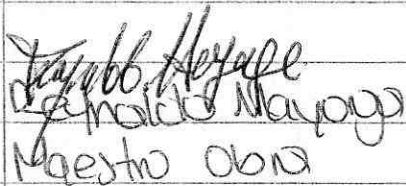 Reynaldo Mayorga
Maestro Obra